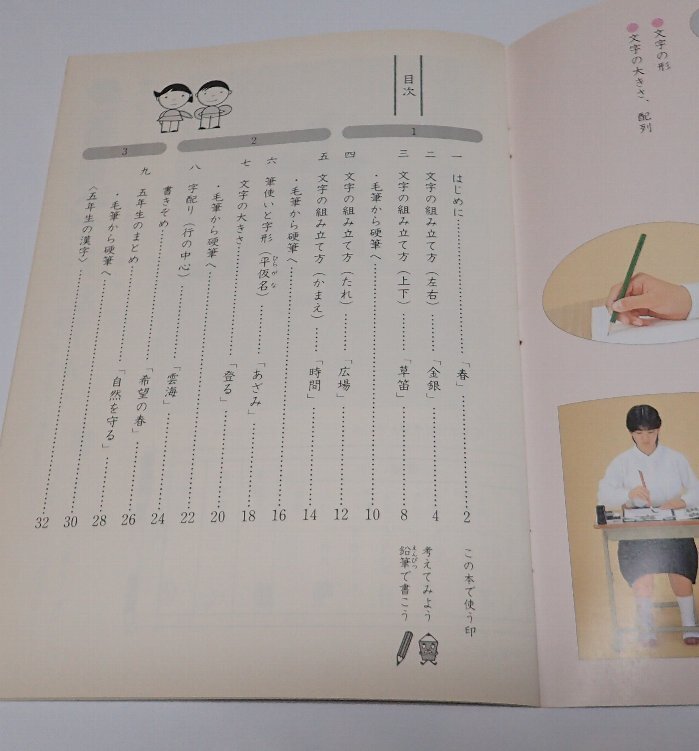 ●文字の形
●文字の大きさ、配列
目次
1
一 はじめに……「春」……2
二 文字の組み立て方(左右)……「金銀」……4
三 文字の組み立て方(上下)……「草笛」……8
・毛筆から硬筆へ……10
四 文字の組み立て方(たれ)……「広場」……12
五 文字の組み立て方(かまえ)……「時間」……14
2
・毛筆から硬筆へ……16
六 筆使いと字形(平仮名)……「あざみ」……18
ひらがな
七 文字の大きさ……「登る」……20
・毛筆から硬筆へ……22
八 字配り(行の中心)……「雲海」……24
書きぞめ……「希望の春」……26
3
九 五年生のまとめ……「自然を守る」……28
・毛筆から硬筆へ……30
〈五年生の漢字〉……32
この本で使う印
考えてみよう
鉛筆で書こう
えんぴつ